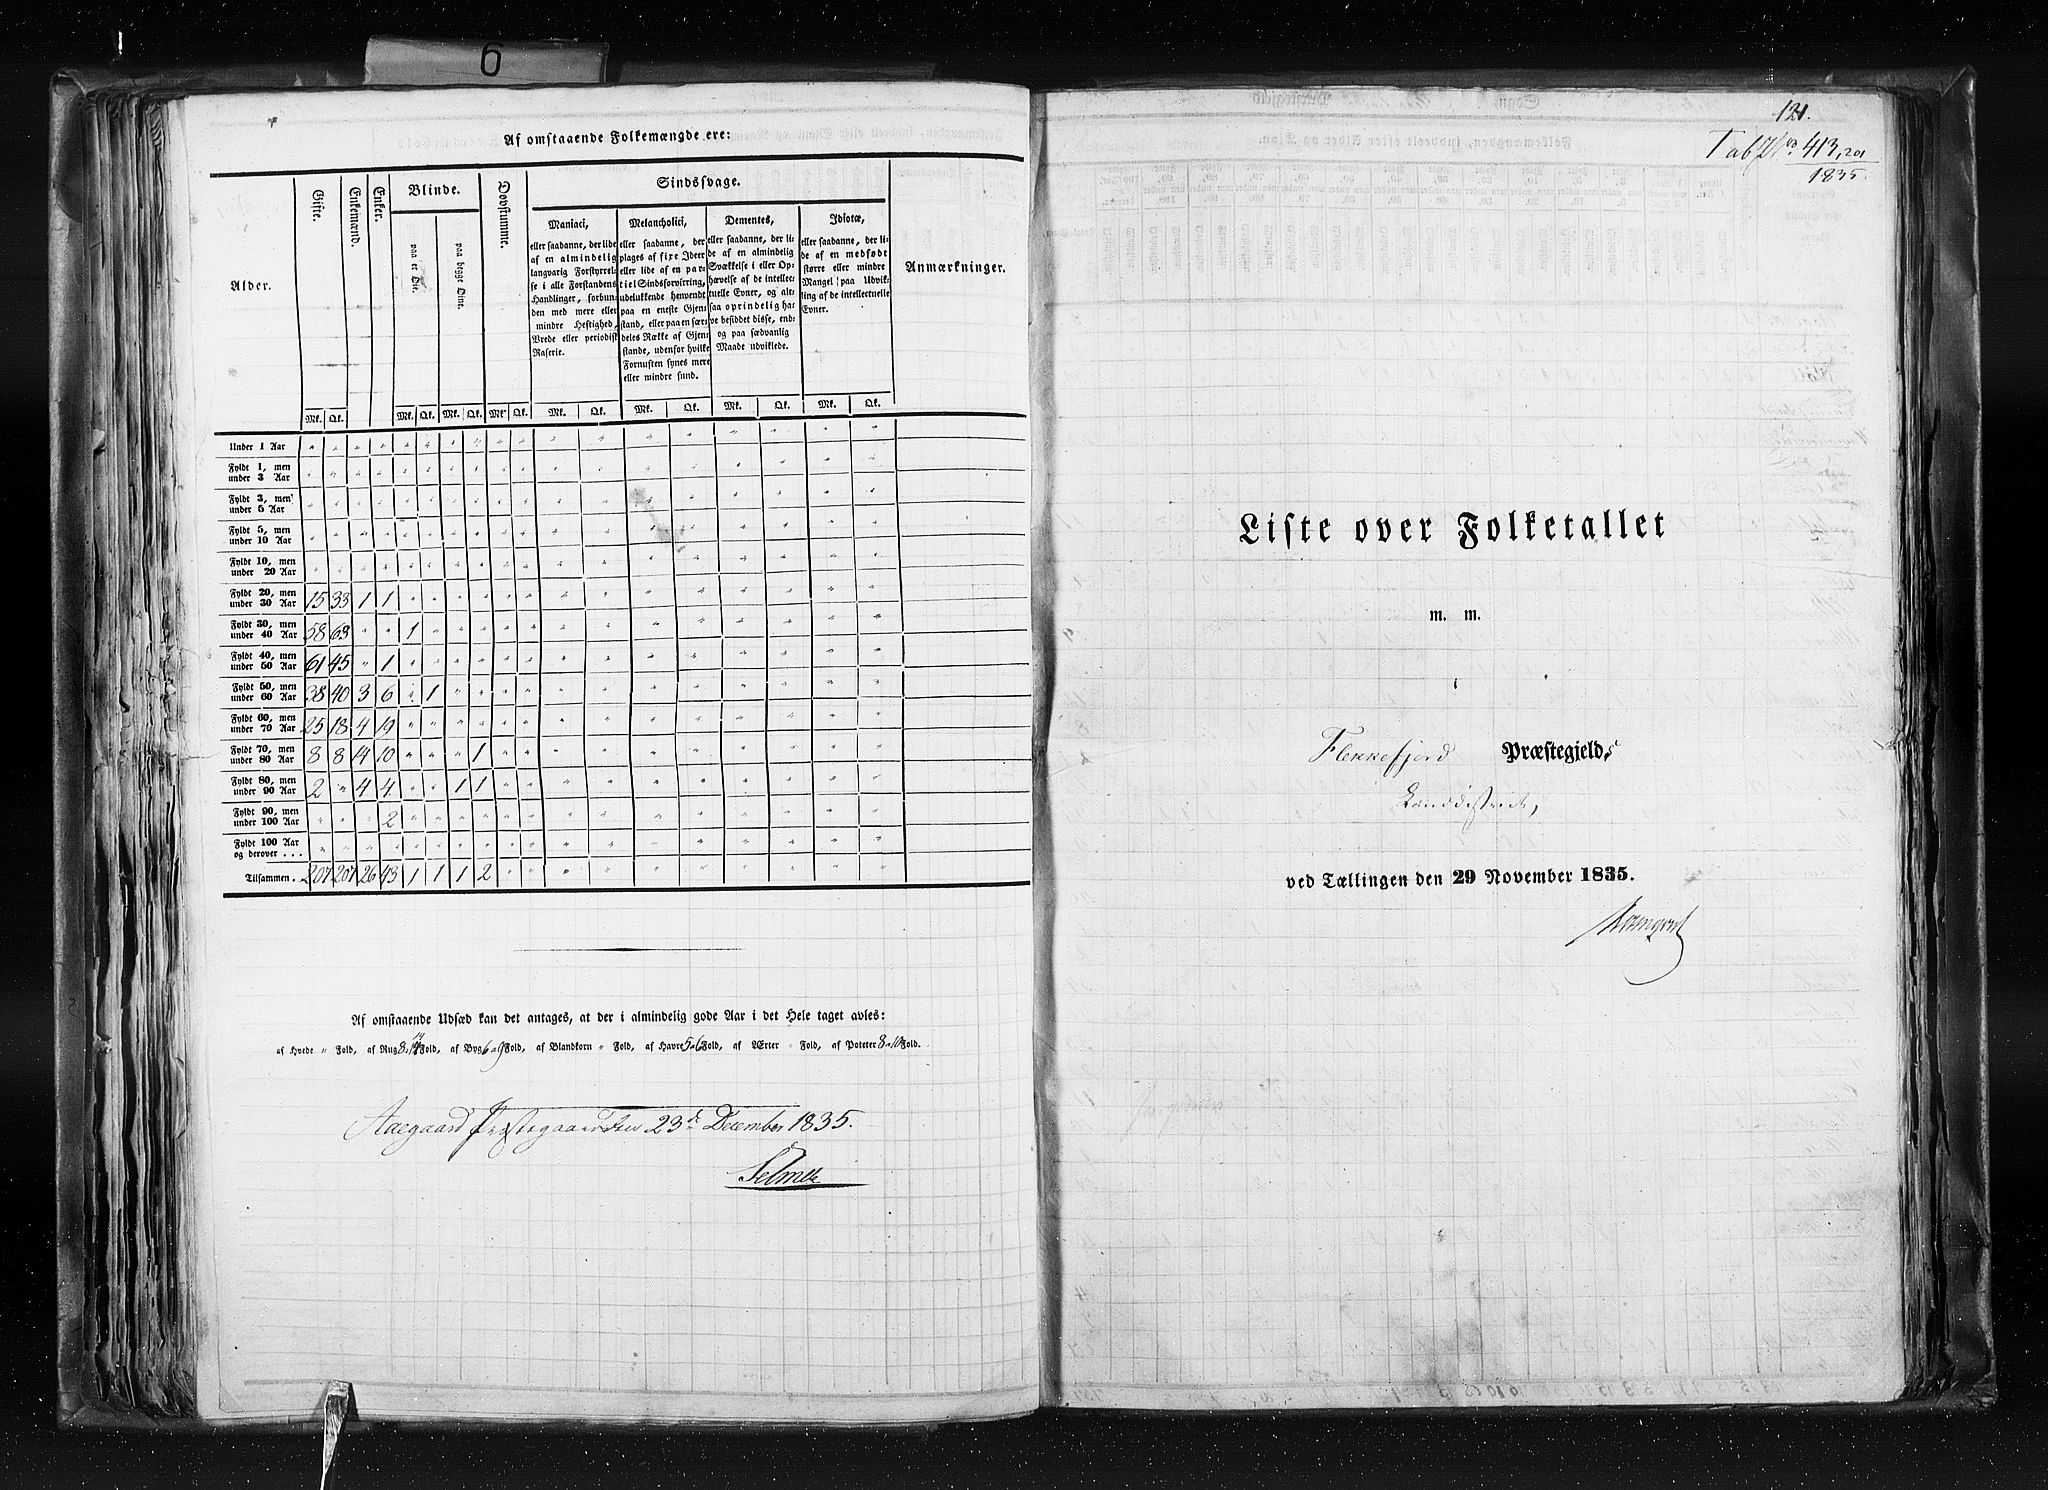 6
Af omstaaende Folkemængde ere:
Alder.
Gifte.
Enkemænd.
Enker.
Blinde.
paa et Øie.
paa begge Øine.
Døvstumme.
Sindssvage.
Maniaci,
eller saadanne, der lide
af en almindelig
langvarig Forstyrrel-
se i alle Forstandens
Handlinger, forbun-
den med mere eller
mindre Heftighed,
Vrede eller periodisk
Raserie.
Melancholici,
eller saadanne, der
plages af fixe Ideer
eller lide af en par-
tiel Sindsforvirring,
udelukkende henvendt
paa en eneste Gjen-
stand, eller paa en sær-
deles Række af Gjen-
stande, udenfor hvilke
Fornuften synes mere
eller mindre sund.
Dementes,
eller saadanne, der li-
de af en almindelig
Svækkelse i eller Op-
hævelse af de intellec-
tuelle Evner, og alt-
saa oprindelig ha-
ve besiddet disse, end-
og paa sædvanlig
Maade udviklede.
Idiotæ,
eller saadanne, der li-
de af en medfødt
større eller mindre
Mangel paa Udvik-
ling af de intellectuelle
Evner.
Anmærkninger.
Mk. Qk. Mk. Qk. Mk. Qk. Mk. Qk. Mk. Qk. Mk. Qk. Mk. Qk. Mk. Qk.
Under 1 Aar " " " " " " " " " " " " " " " " " "
Fyldt 1, men
under 3 Aar " " " " " " " " " " " " " " " " " "
Fyldt 3, men
under 5 Aar " " " " " " " " " " " " " " " " " "
Fyldt 5, men
under 10 Aar " " " " " " " " " " " " " " " " " "
Fyldt 10, men
under 20 Aar " " " " " " " " " " " " " " " " " "
Fyldt 20, men
under 30 Aar 15 33 1 1 " " " " " " " " " " " " " "
Fyldt 30, men
under 40 Aar 58 63 " " 1 " " " " " " " " " " " " "
Fyldt 40, men
under 50 Aar 61 45 " 1 " " " " " " " " " " " " " "
Fyldt 50, men
under 60 Aar 38 40 3 6 " 1 " " " " " " " " " " " "
Fyldt 60, men
under 70 Aar 25 18 4 19 " " " " " " " " " " " " " "
Fyldt 70, men
under 80 Aar 8 8 14 10 " " " 1 " " " " " " " " " "
Fyldt 80, men
under 90 Aar 2 " 4 4 " " 1 1 " " " " " " " " " "
Fyldt 90, men
under 100 Aar " " " 2 " " " " " " " " " " " " " "
Fyldt 100 Aar
og derover . . . " " " " " " " " " " " " " " " " " "
Tilsammen . 207 207 26 43 1 1 1 2 " " " " " " " " " "
Af omstaaende Udsæd kan det antages, at der i almindelig gode Aar i det Hele taget avles:
af Hvede " Fold, af Rug 8 Fold, af Byg 6 Fold, af Blandkorn " Fold, af Havre 5 a 6 Fold, af Ærter " Fold, af Poteter 8 a 10 Fold.
Aaegaard Præstegaard den 23d December 1835.
Selmer
121.
Tab. 413, 201
1835.
Liste over Folketallet
m. m.
i
Flekkefjord Præstegjelds
Landdistrict,
ved Tællingen den 29 November 1835.